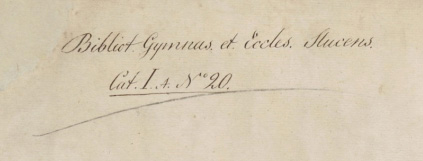 Bibliot Gymnas. et Eccles. Stucens.
Cat. I. A. No 20.